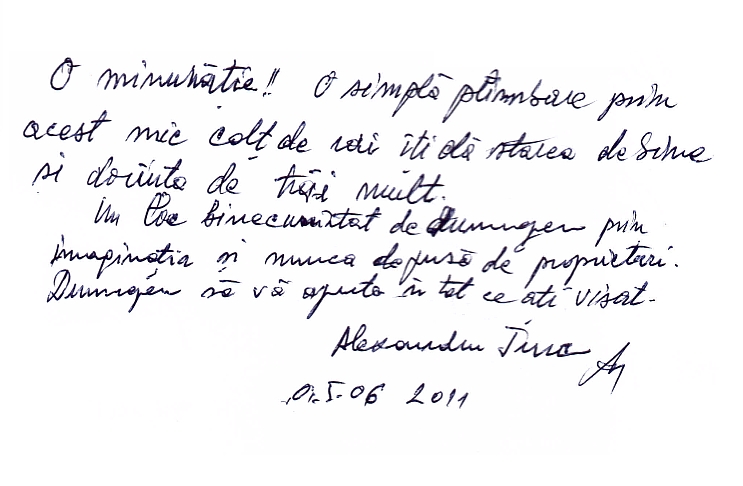 O minunăție!! O simplă plimbare prin
acest mic colț de rai îti dă starea de bine
si dorința de trăi mult.
Un loc binecuvântat de Dumnezeu prin
imaginatia si munca depusă de proprietari.
Dumnezeu să vă ajute în tot ce ati visat.
Alexandru
06 2011